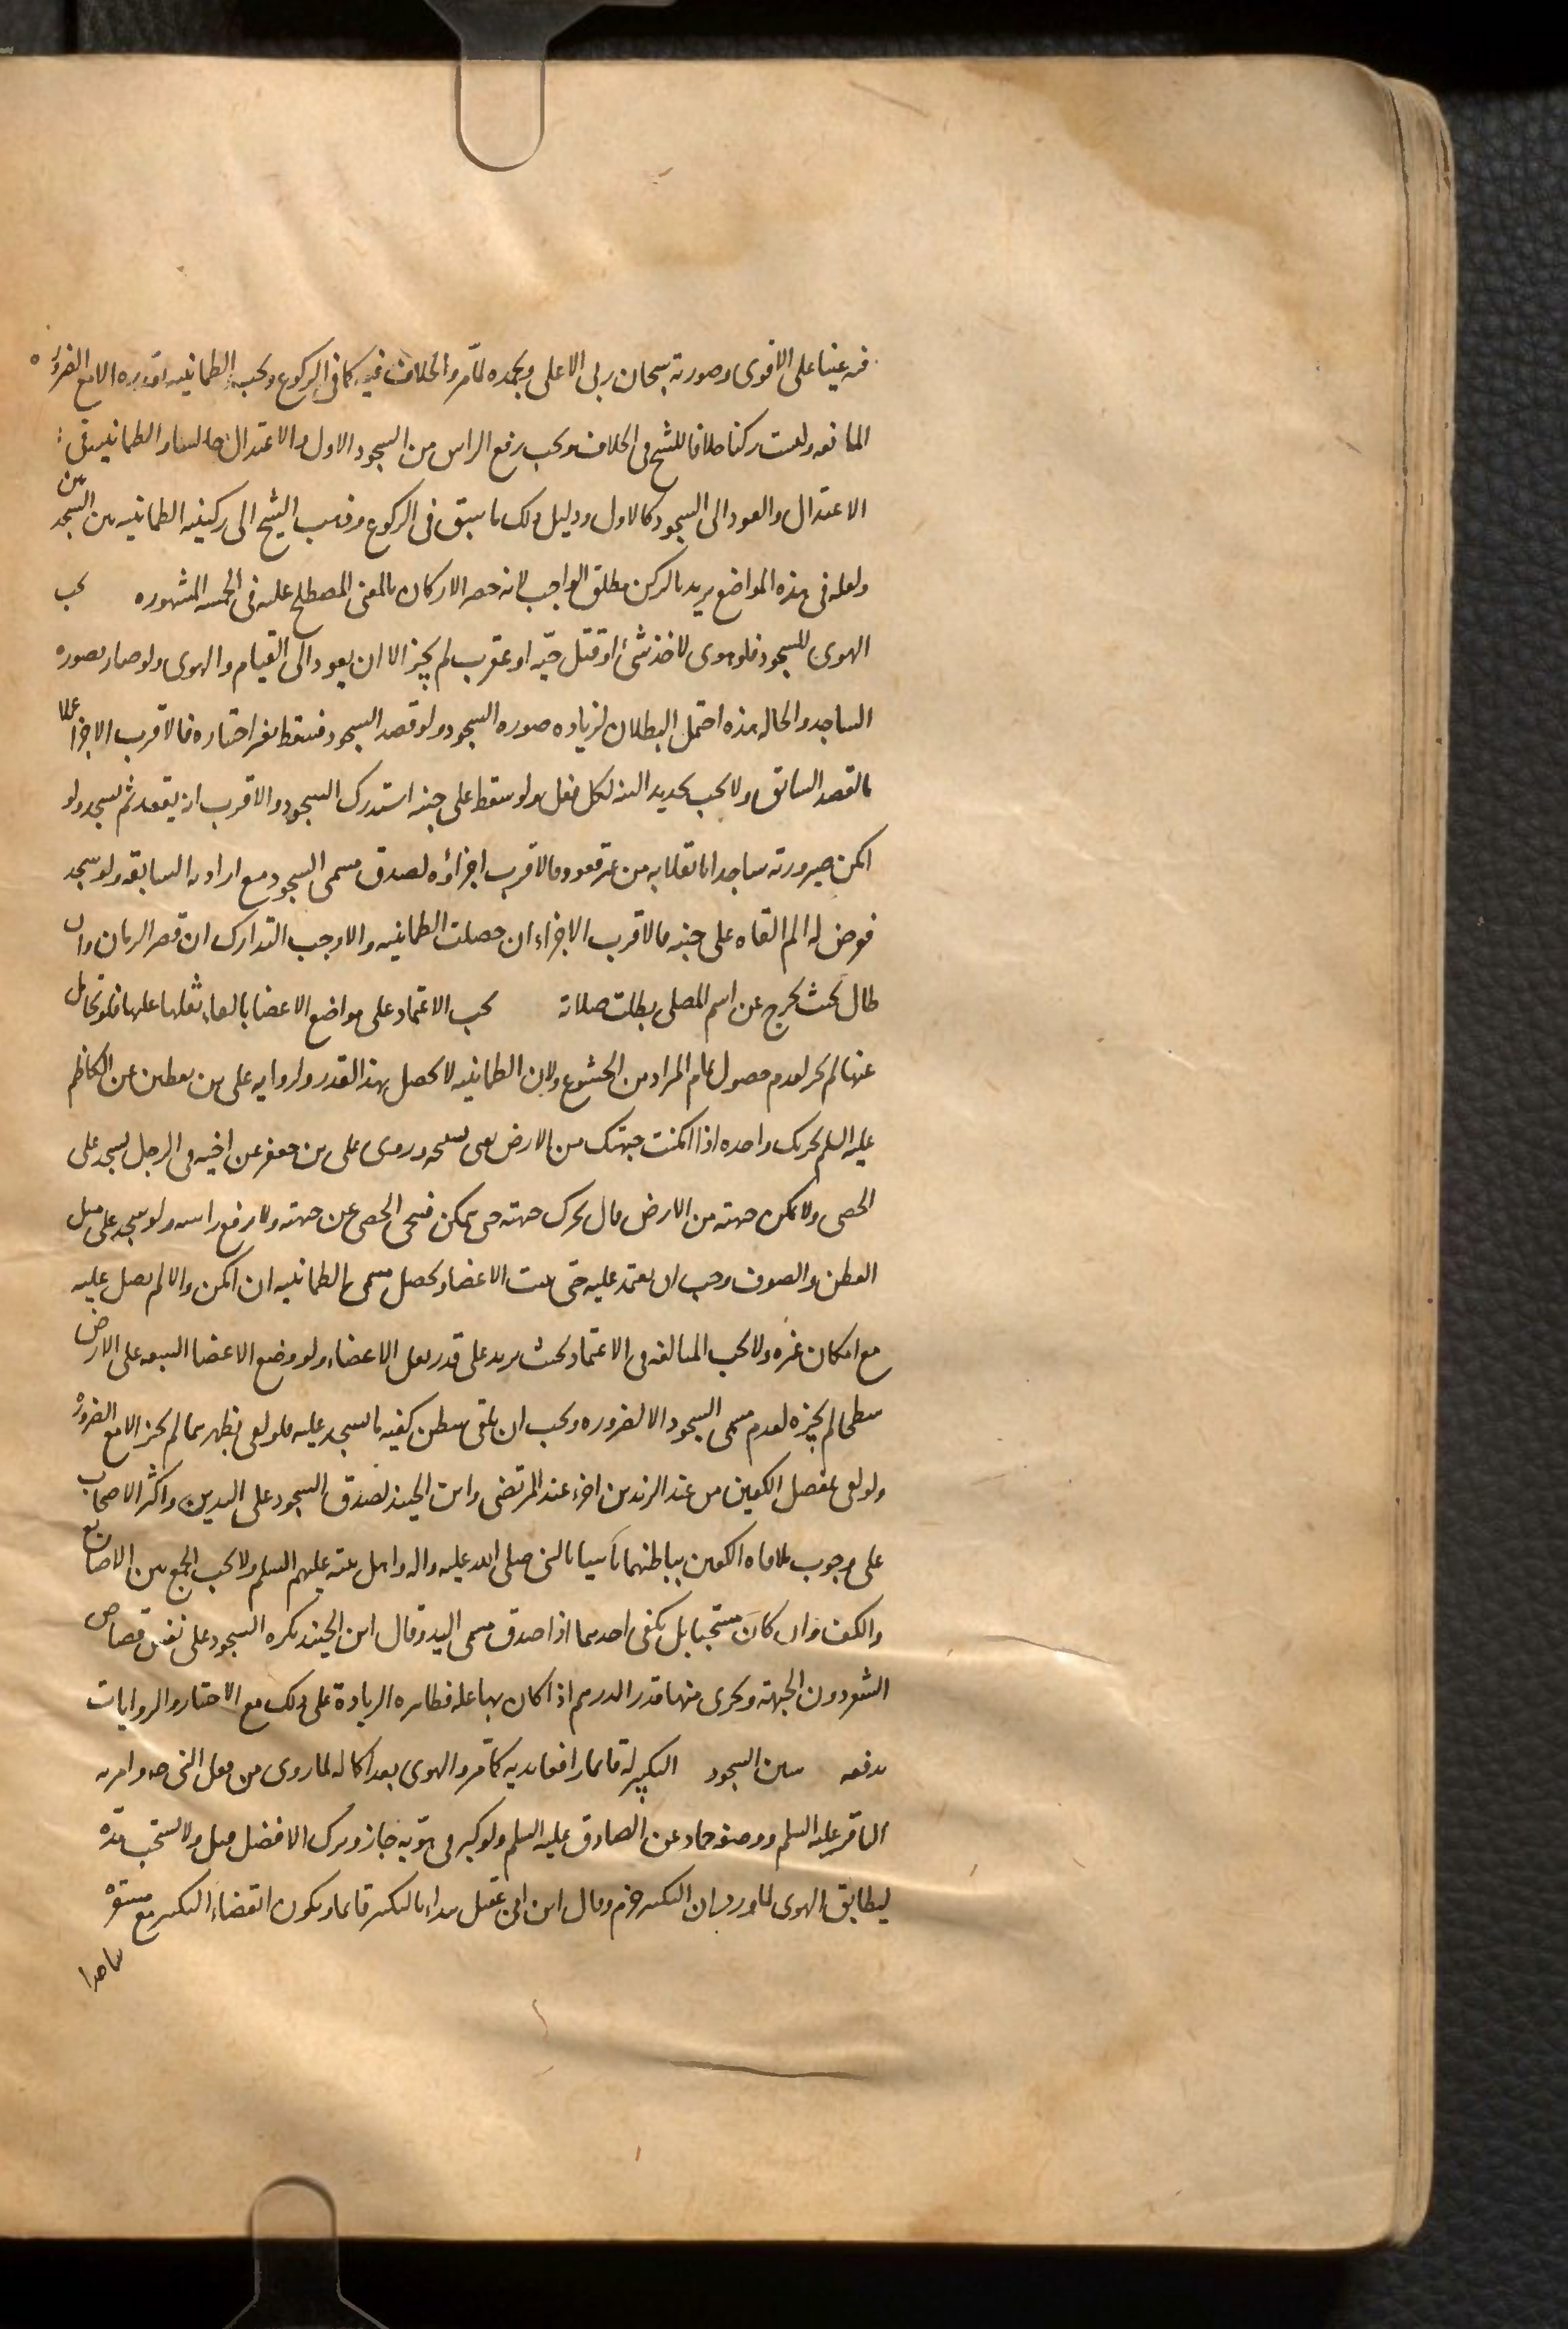 فيه عينا على الاقوى وصورته سبحان ربى الاعلى وبحمده لما مر والخلاف فيه كما فى الركوع ويجب الطمانينه بقدره الا مع الضرورة
المانعه وليست ركنا خلافا للشيخ فى الخلاف ويجب رفع الراس من السجود الاول والاعتدال جالسا والطمانينه فى
الاعتدال والعود الى السجود كالاول ودليل ذلك ما سبق فى الركوع وذهب الشيخ الى ركنيه الطمانينه بين السجدتين
ولعله فى هذه المواضع يريد بالركن مطلق الواجب لانه حصر الاركان بالمعنى المصطلح عليه فى الخمسه المشهوره يجب
الهوى للسجود فلو هوى لاخذ شئ او قتل حيه او عقرب لم يجز الا ان يعود الى القيام والهوى ولو صار بصوره
الساجد والحال هذه احتمل البطلان لزياده صوره السجود ولو قصد السجود فسقط بغير اختياره فالاقرب الاجزا عملا
بالقصد السابق ولا يجب تجديد النيه لكل فعل ولو سقط على جنبه استدرك السجود والاقرب ان يقعد ثم يسجد ولو
امكن صيرورته ساجدا بانقلابه من غير قعود فالاقرب اجزاؤه لصدق مسمى السجود مع ارادته السابقه ولو سجد
فعرض له الم القاه على جنبه فالاقرب الاجزاء ان حصلت الطمانينه والا وجب التدارك ان قصر الزمان وان
طال بحيث يخرج عن اسم المصلى بطلت صلاته يجب الاعتماد على مواضع الاعضا بالقاء ثقلها عليها فلو تحامل
عنها لم يجز لعدم حصول تمام المراد من الخشوع ولان الطمانينه لا تحصل بهذا القدر ولروايه على بن يقطين عن الكاظم
عليه السلم تجزيك واحده اذا امكنت جبهتك من الارض يعنى تسبيحه وروى على بن جعفر عن اخيه فى الرجل يسجد على
الحصى ولا يمكن جبهته من الارض قال يحرك جبهته حتى يمكن فينحى الحصى عن جبهته ولا يرفع راسه ولو سجد على مثل
القطن والصوف وجب ان يعتمد عليه حتى تثبت الاعضا وتحصل مسمى الطمانينه ان امكن والا لم يصل عليه
مع امكان غيره ولا يجب المبالغه فى الاعتماد بحيث يزيد على قدر ثقل الاعضاء ولو وضع الاعضا السبعه على الارض
منبطحا لم يجزه لعدم مسمى السجود الا لضروره ويجب ان يلقى ببطن كفيه ما يسجد عليه فلو لقى بظهرهما لم يجز الا مع الضرورة
ولو لقى بمفصل الكفين من عند الزندين اجزء عند المرتضى وابن الجنيد لصدق السجود على اليدين واكثر الاصحاب
على وجوب ملاقاه الكفين بباطنهما تاسيا بالنبى صلى الله عليه واله واهل بيته عليهم السلم ولا يجب الجمع بين الاصابع
والكف وان كان مستحبا بل يكفى احدهما اذا صدق مسمى اليد وقال ابن الجنيد يكره السجود على نفس قصاص
الشعر دون الجبهة ويجزى منها قدر الدرهم اذا كان بها عله فظاهره الزيادة على ذلك مع الاختيار والروايات
تدفعه سنن السجود التكبير له قائما رافعا يديه كما مر والهوى بعد اكماله لما روى من فعل النبى صه وامر به
الباقر عليه السلم ووصفه حماد عن الصادق عليه السلم ولو كبر فى هويه جاز وترك الافضل قيل ولا يستحب مده
ليطابق الهوى لما ورد ان التكبير جزم وقال ابن ابى عقيل يبداء بالتكبير قائما ويكون انقضاء التكبير مع مستقره
ساجدا